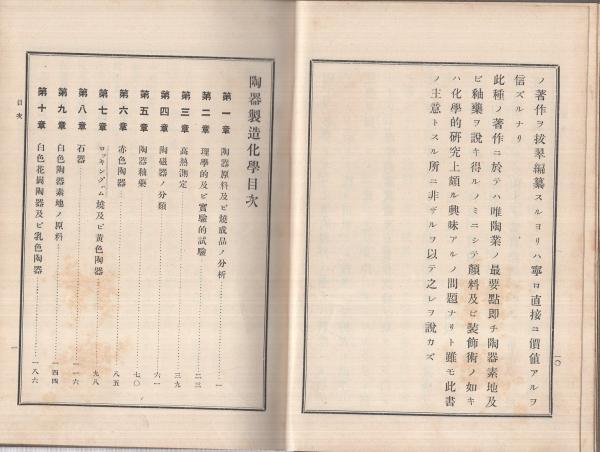 ノ著作ヲ拔翠編纂スルヨリハ寧ロ直接ニ價値アルヲ
信ズルナリ
此種ノ著作ニ於テハ唯陶業ノ最要點即チ陶器素地及
ビ釉藥ヲ說キ得ルノミニシテ顏料及ビ裝飾術ノ如キ
ハ化學的硏究上頗ル興味アルノ問題ナリト雖モ此書
ノ主意トスル所ニ非ザルヲ以テ之レヲ說カズ
一〇
陶器製造化學目次
第一章 陶器原料及ビ燒成品ノ分析 一
第二章 理學的及ビ實驗的試驗 二三
第三章 高熱測定 三九
第四章 陶磁器ノ分類 六一
第五章 陶器釉藥 七〇
第六章 赤色陶器 八五
第七章 ロッキングハム燒及ビ黃色陶器 九八
第八章 石器 一一六
第九章 白色陶器素地ノ原料 一四四
第十章 白色花崗陶器及ビ乳色陶器 一八六
目次
一